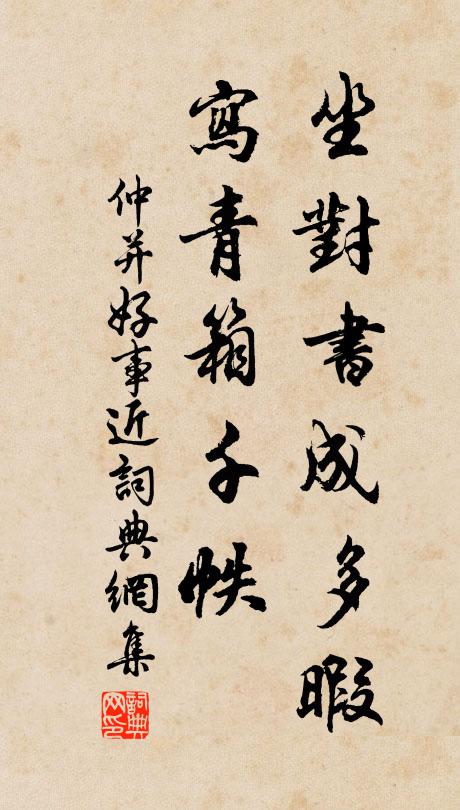 坐對書成多暇
寫青箱千帙
仲并好事近詞典網集
詞典网印